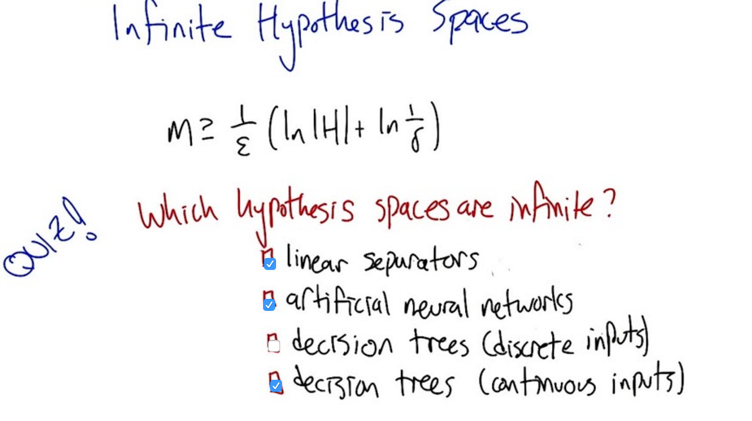 Infinite Hypothesis Spaces
m ≥ 1/ε (ln |H| + ln 1/δ)
QUIZ!
Which hypothesis spaces are infinite?
linear separators
artificial neural networks
decision trees (discrete inputs)
decision trees (continuous inputs)